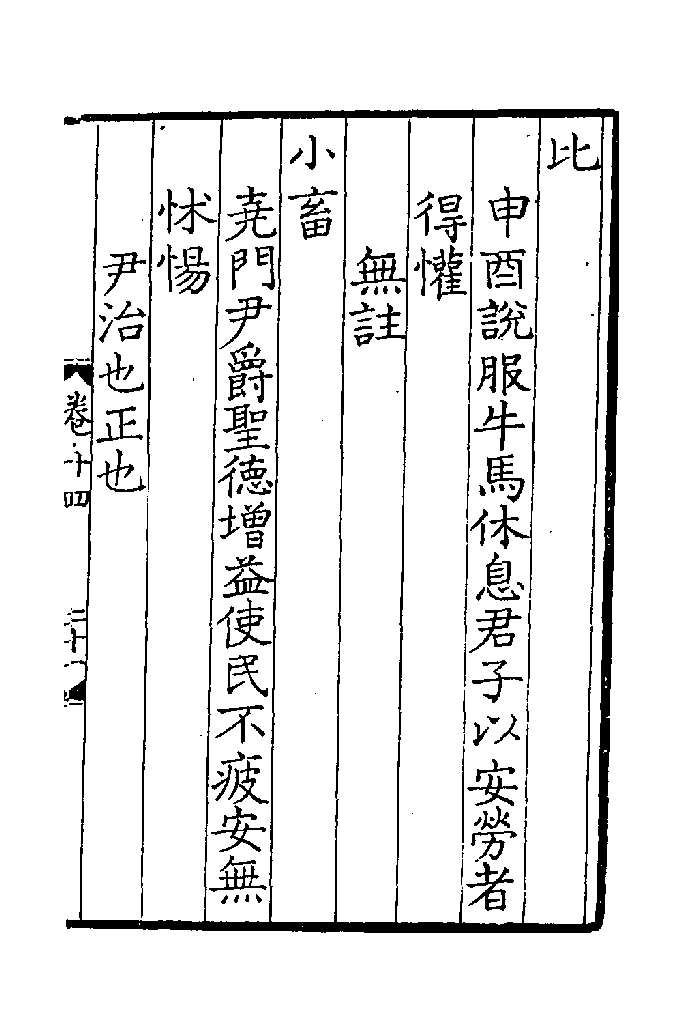 比
申酉說服牛馬休息君子以安勞者
得懽
無註
小畜
堯門尹爵聖德增益使民不疲安無
怵惕
尹治也正也
卷十四